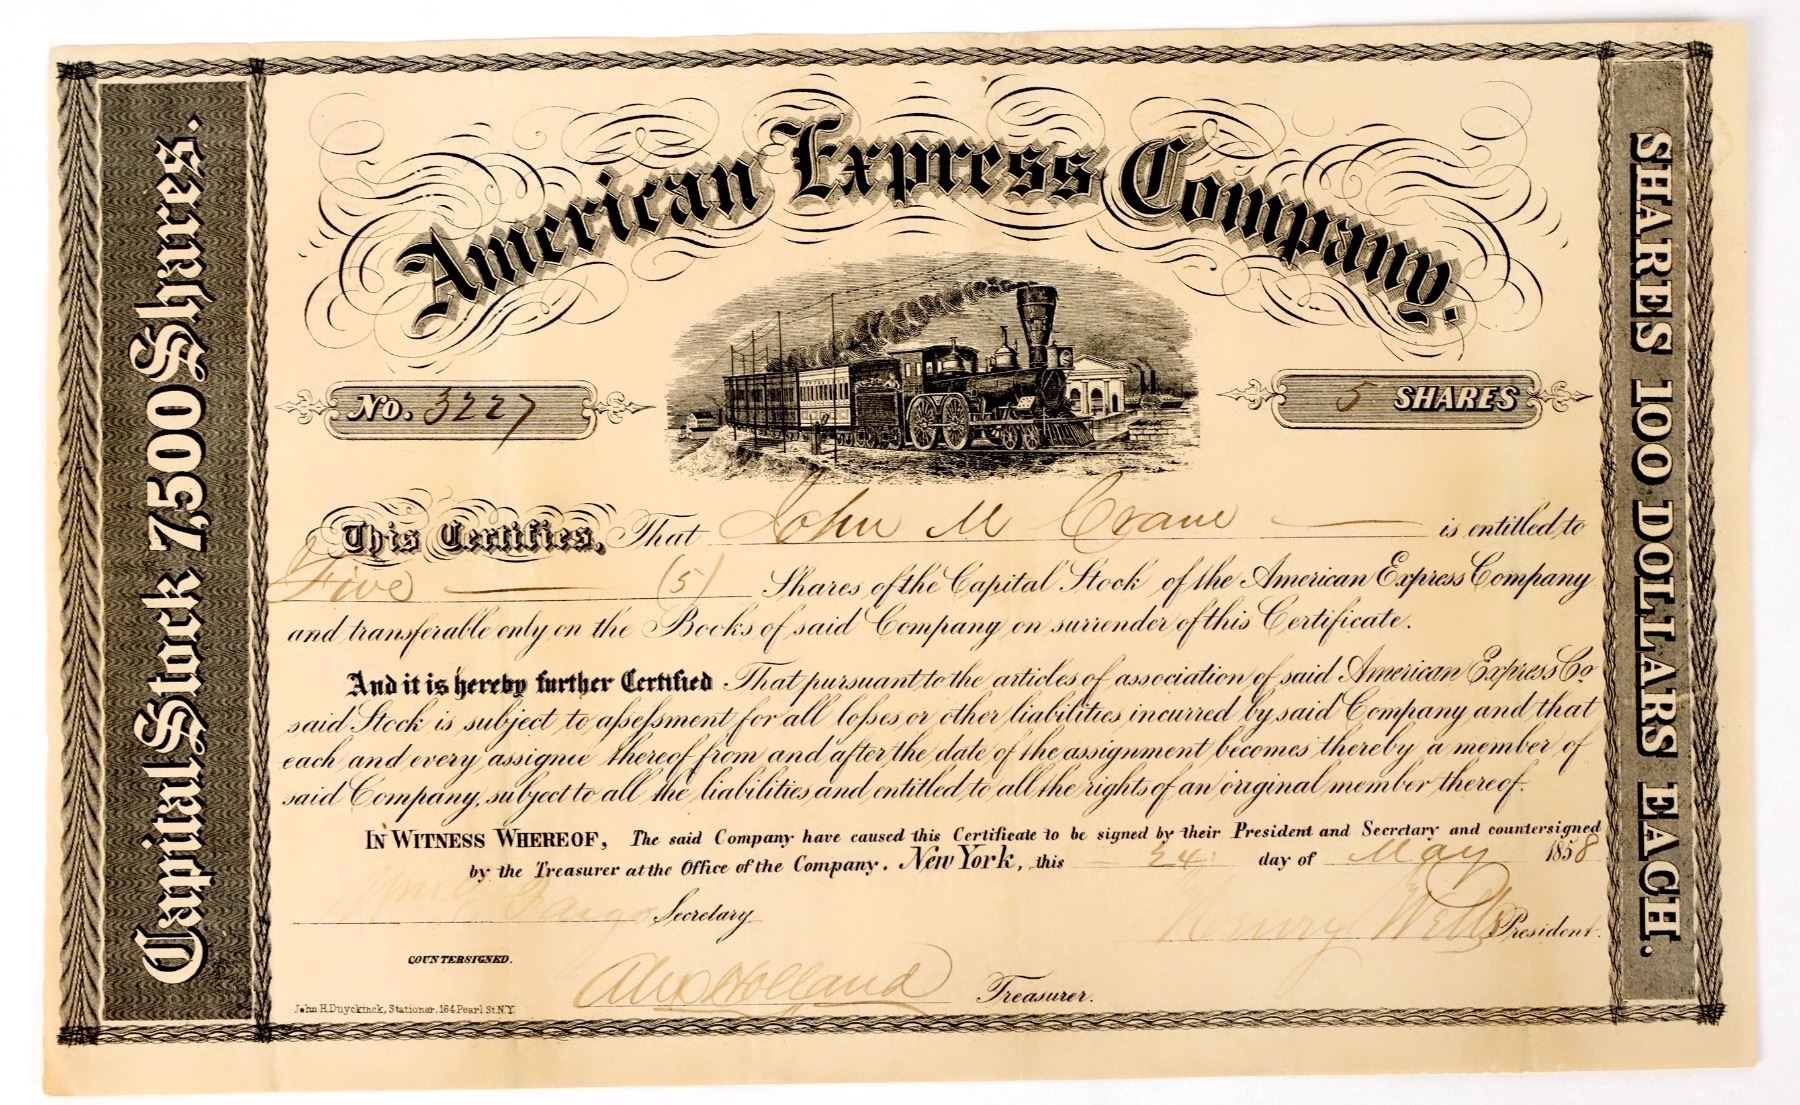 American Express Company.
Capital Stock 7,500 Shares.
SHARES 100 DOLLARS EACH.
No. 3227
5 SHARES
This Certifies, That John M Crane is entitled to
Five (5) Shares of the Capital Stock of the American Express Company
and transferable only on the Books of said Company on surrender of this Certificate.
And it is hereby further Certified That pursuant to the articles of association of said American Express Co
said Stock is subject to assessment for all losses or other liabilities incurred by said Company and that
each and every assignee thereof from and after the date of the assignment becomes thereby a member of
said Company, subject to all the liabilities and entitled to all the rights of an original member thereof.
IN WITNESS WHEREOF, The said Company have caused this Certificate to be signed by their President and Secretary and countersigned
by the Treasurer at the Office of the Company. New York, this 24 day of May 1858
Wm G Fargo Secretary
Henry Wells President.
COUNTERSIGNED.
Alex Holland Treasurer.
John H. Duyckinck, Stationer, 164 Pearl St. N.Y.